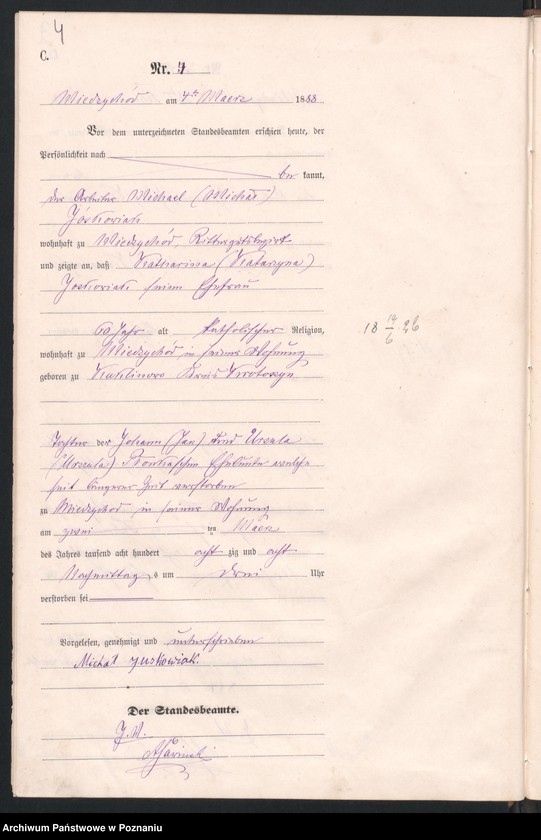 4
C.
Nr. 4
Miedzychód am 4ten Maerz 1888
Vor dem unterzeichneten Standesbeamten erschien heute, der
Persönlichkeit nach
be kannt,
der Arbeiter Michael (Michał)
wohnhaft zu Miedzychód, Rittergutsbezirk
und zeigte an, daß Katharina (Katarzyna)
seine Ehefrau
60 Jahr alt katholischer Religion,
wohnhaft zu Miedzychód in seiner Wohnung
geboren zu Kreis Krotoszyn
18 6 26
Tochter der Johann (Jan) und Ursula
(Urszula) Eheleute welche
seit längerer Zeit verstorben
zu Miedzychod in seiner Wohnung
am zwei ten Maerz
des Jahres tausend acht hundert acht zig und acht
Nachmittag s um drei Uhr
verstorben sei
Vorgelesen, genehmigt und unterschrieben
Michał Juskowiak.
Der Standesbeamte.
J. V.
Archiwum Państwowe w Poznaniu